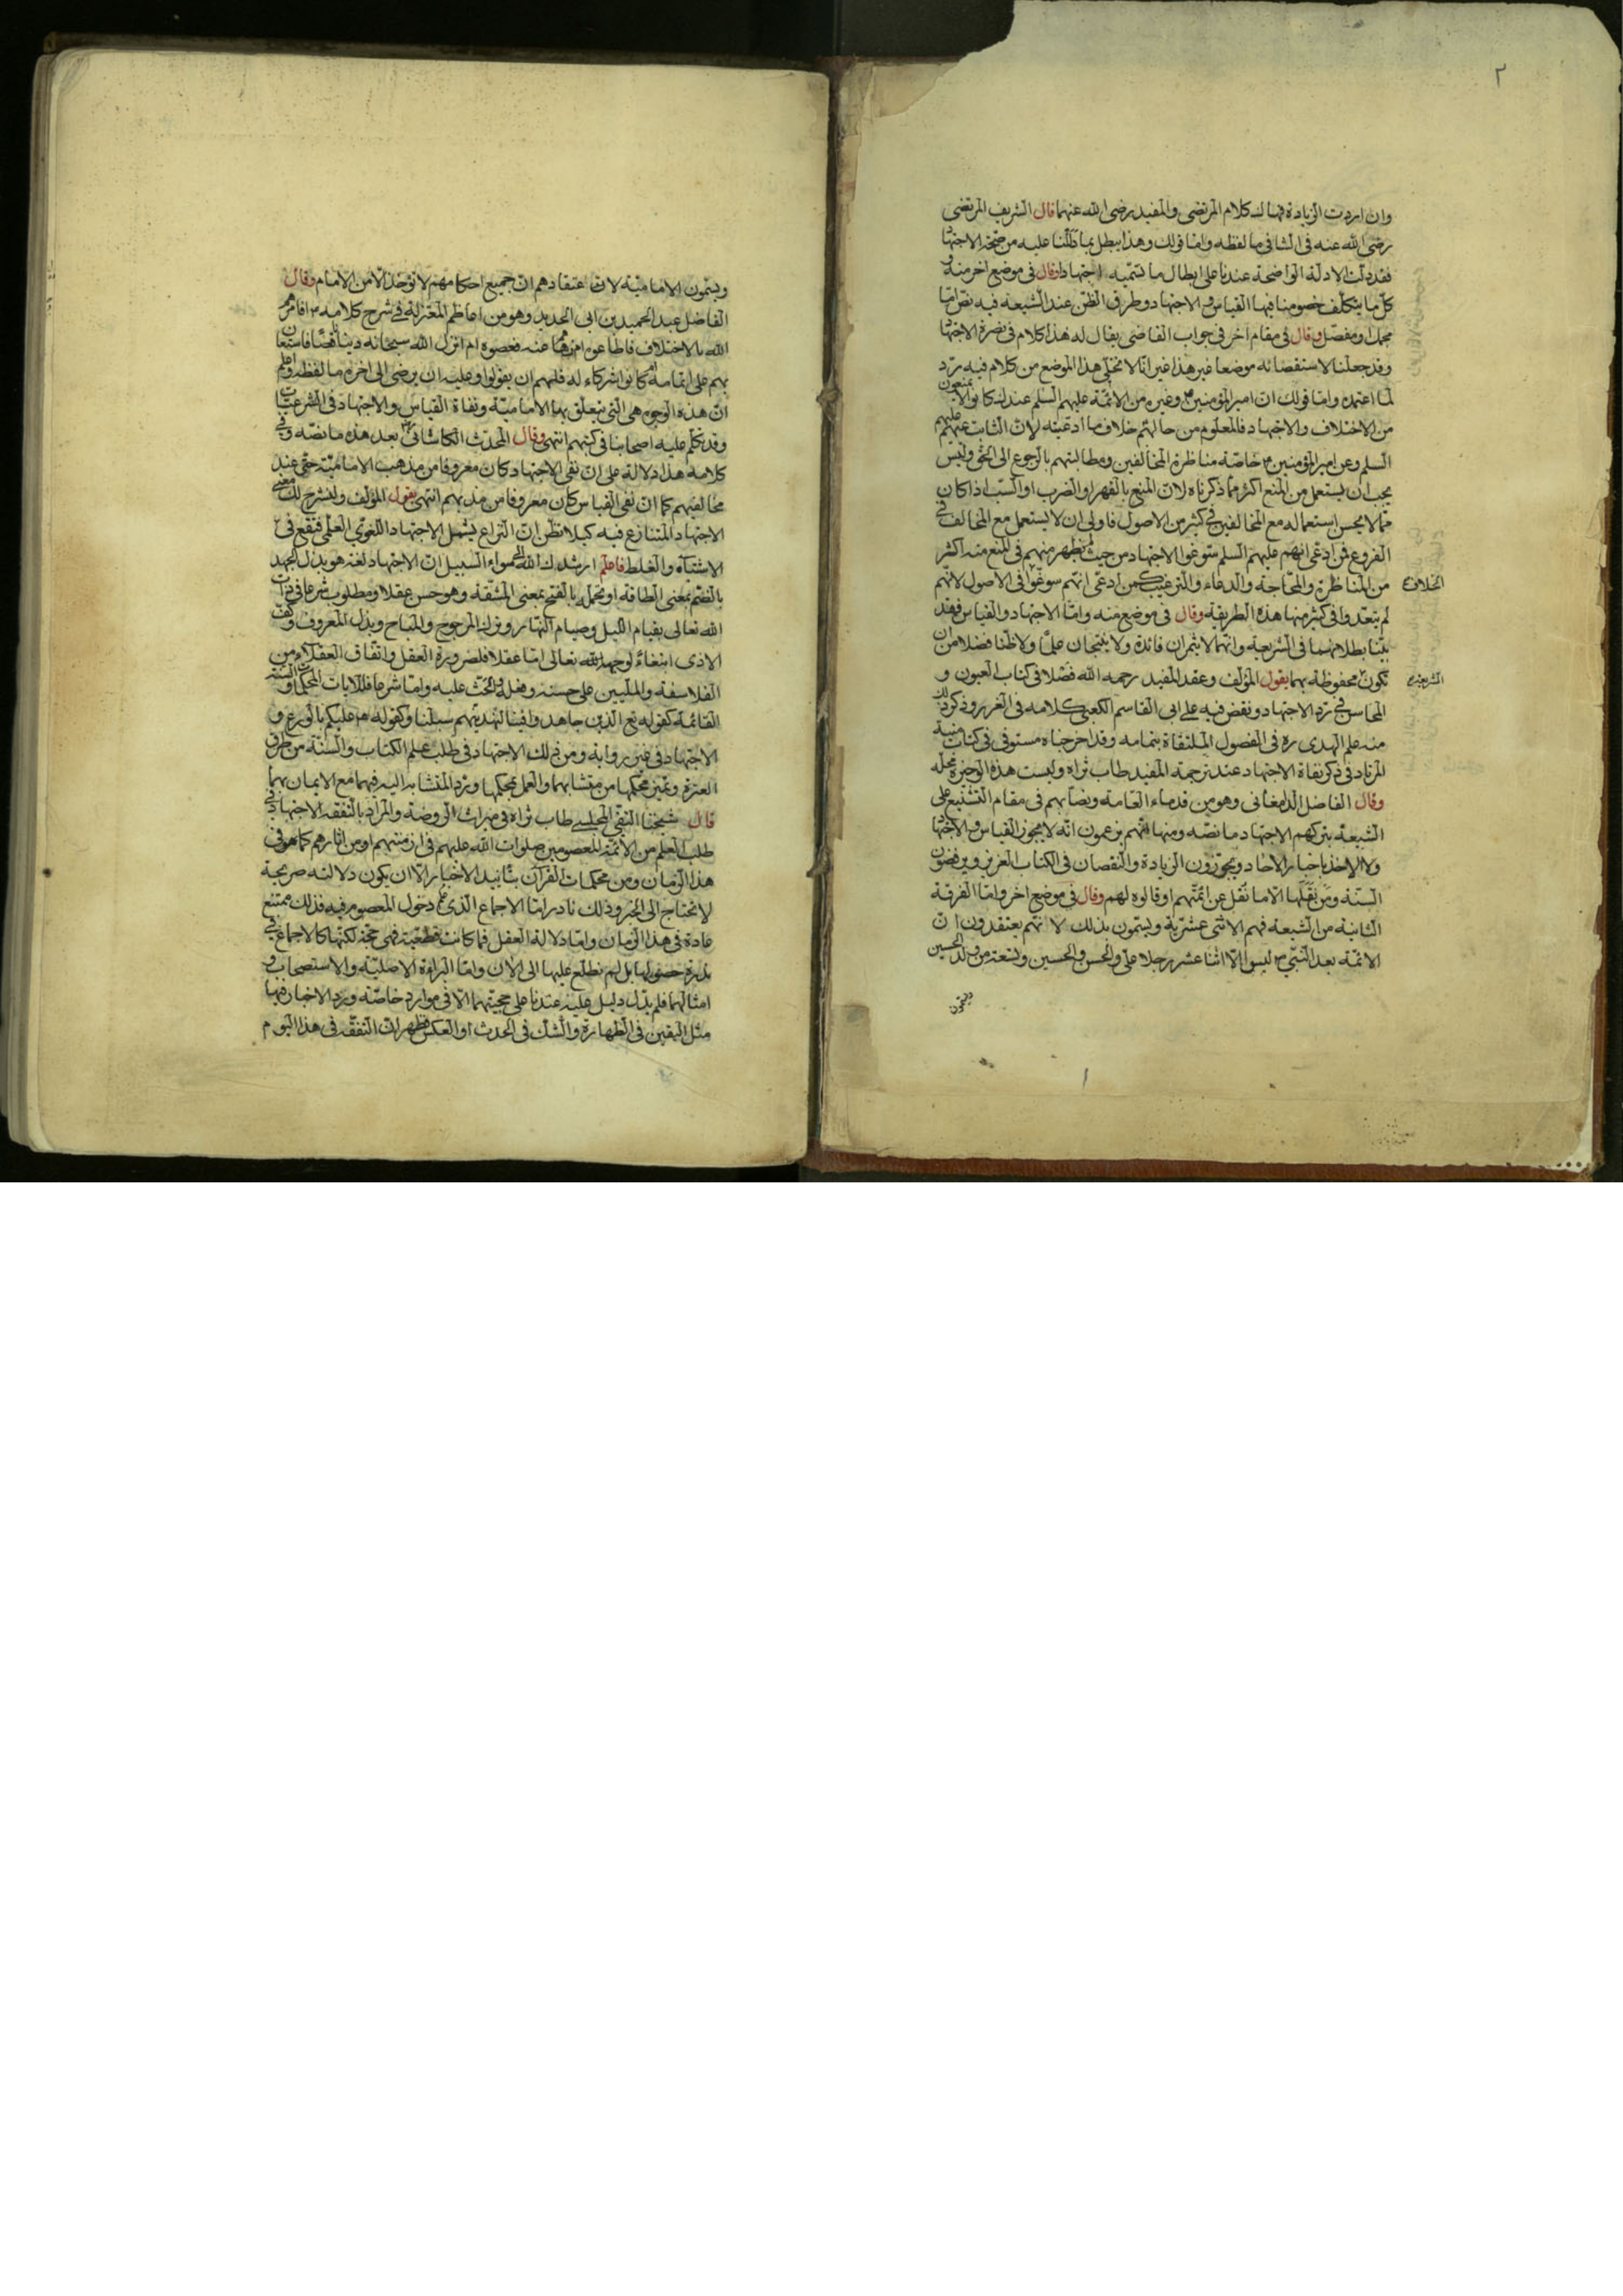 ٢
وان اردت الزيادة فهاك كلام المرتضى والمفيد رضى الله عنهما قال الشريف المرتضى
رضى الله عنه فى الشافى ما لفظه واما قولك وهذا يبطل بما دللنا عليه من صحة الاجتهاد
فقد دلت الادلة الواضحة عندنا على ابطال ما تسميه اجتهادا وقال فى موضع اخر منه و
كل ما يتكلف خصومنا فيها القياس والاجتهاد وطرق الظن عند الشيعه فيه نص اما
مجمل او مفصل وقال فى مقام اخر فى جواب القاضى يقال له هذا كلام فى نصرة الاجتهاد
وقد جعلنا لاستقصائه موضعا غير هذا غير انا لا نخلى هذا الموضع من كلام فيه رد
لما اعتمده واما قولك ان امير المؤمنين وغيره من الائمة عليهم السلم عندك كانوا لا يمنعون
من الاختلاف والاجتهاد فالمعلوم من حالهم خلاف ما ادعيته لان الثابت عنهم عليهم
السلم وعن امير المؤمنين خاصة مناظرة المخالفين ومطالبتهم بالرجوع الى الحق وليس
يجب ان يستعمل من المنع اكثر مما ذكرناه لان المنع بالقهر او الضرب او السب اذا كان
مما لا يحسن استعماله مع المخالفين فى كثير من الاصول فاولى ان لا يستعمل مع المخالف فى
الفروع فمن ادعى انهم عليهم السلم سوغوا الاجتهاد من حيث لم يظهر منهم فى المنع منه اكثر
من المناظرة والمحاجة والدعاء والترغيب كمن ادعى انهم سوغوا فى الاصول لانهم
الخلاف
لم يتعدوا فى كثير منها هذه الطريقة وقال فى موضع منه واما الاجتهاد والقياس فقد
بينا بطلانهما فى الشريعة وانهما لا يثمران فائدة ولا ينتجان علما ولا ظنا فضلا من ان
تكون محفوظة بهما يقول المؤلف وعقد المفيد رحمه الله فصلا فى كتاب العيون و
الشريعة
المحاسن فى رد الاجتهاد ونقض فيه على ابى القاسم الكعبى كلامه فى الغرر وذكر ذلك
منه علم الهدى ره فى الفصول الملتقاة بتمامه وقد اخرجناه مستوفى فى كتاب منية
المرتاد فى ذكر نفاة الاجتهاد عند ترجمة المفيد طاب ثراه وليست هذه الوجيزة محله
وقال الفاضل الدامغانى وهو من قدماء العامة ونصابهم فى مقام التشنيع على
الشيعة بتركهم الاجتهاد ما نصه ومنها انهم يزعمون انه لا يجوز القياس والاجتهاد
ولا الاخذ باخبار الاحاد ويجوزون الزيادة والنقصان فى الكتاب العزيز ويرفضون
السنة ومن نقلها الا ما نقل عن ائمتهم او قالوه لهم وقال فى موضع اخر واما الفرقة
الثانية من الشيعة فهم الاثنى عشرية ويسمون بذلك لانهم يعتقدون ان
الائمة بعد النبى ليسوا الا اثنا عشر رجلا على والحسن والحسين وتسعة من ولد الحسين
ويسمون
ويسمون الامامية لان اعتقادهم ان جميع احكامهم لا تؤخذ الا من الامام وقال
الفاضل عبد الحميد بن ابى الحديد وهو من اعاظم المعتزلة فى شرح كلامه افامرهم
الله بالاختلاف فاطاعوه ام نهاهم عنه فعصوه ام انزل الله سبحانه دينا ناقصا فاستعان
بهم على اتمامه ام كانوا شركاء له فلهم ان يقولوا وعليه ان يرضى الى اخره ما لفظه واعلم
ان هذه الوجوه هى التى تتعلق بها الامامية ونفاة القياس والاجتهاد فى الشرعيات
وقد تكلم عليه اصحابنا فى كتبهم انتهى وقال المحدث الكاشانى بعد هذه ما نصه وفى
كلامه هذا دلالة على ان نفى الاجتهاد كان معروفا من مذهب الامامية حتى عند
مخالفيهم كما ان نفى القياس كان معروفا من مذهبهم انتهى يقول المؤلف ولنشرح لك معنى
الاجتهاد المتنازع فيه كيلا تظن ان النزاع يشمل الاجتهاد اللغوى العلمى فتقع فى
الاشتباه والغلط فاعلم ارشدك الله الى سواء السبيل ان الاجتهاد لغة هو بذل الجهد
بالضم بمعنى الطاقة او تحمله بالفتح بمعنى المشقة وهو حسن عقلا ومطلوب شرعا فى ذات
الله تعالى بقيام الليل وصيام النهار وترك المرجوح والمباح وبذل المعروف وكف
الاذى ابتغاء لوجه الله تعالى اما عقلا فلضرورة العقل واتفاق العقلاء من
الفلاسفة والمليين على حسنه وفعله والحث عليه واما شرعا فللايات المحكمات والسنة
القائمة كقوله تع الذين جاهدوا فينا لنهدينهم سبلنا وكقوله عليكم بالورع و
الاجتهاد فى غير رواية ومن ذلك الاجتهاد فى طلب علم الكتاب والسنة من طرق
العترة وتميز محكمها من متشابهها والعمل بمحكمها ورد المتشابه اليه فيهما مع الايمان بهما
قال شيخنا التقى المجلسى طاب ثراه فى ميراث الروضة والمراد بالتفقه الاجتهاد فى
طلب العلم من الائمة المعصومين صلوات الله عليهم فى ازمنتهم او من اثارهم كما هو فى
هذا الزمان ومن محكمات القرآن بتائيد الاخبار الا ان يكون دلالته صريحة
لا تحتاج الى الخبر وذلك نادر اما الاجماع الذى علم دخول المعصوم فيه فذلك ممتنع
عادة فى هذا الزمان واما دلالة العقل فما كانت قطعية فهى حجة لكنها كالاجماع فى
ندرة حصولها بل لم نطلع عليها الى الان واما البراءة الاصلية والاستصحاب و
امثالهما فلم يدل دليل عليه عندنا على حجيتهما الا فى موارد خاصة ورد الاخبار فيها
مثل اليقين فى الطهارة والشك فى الحدث او العكس فظهر ان التفقه فى هذا اليوم